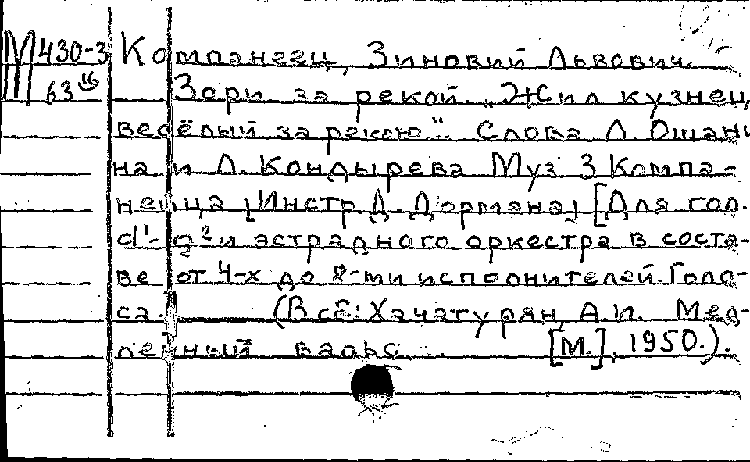 М 430-3 Компанеец, Зиновий Львович.
63 Зори за рекой. „Жил кузнец
весёлый за рекою". Слова Л. Ошани
на и Л. Кондырева Муз З Компа-
нейца, Инстр. Д. Дормана, [Для гол.
d¹-g² и эстрадного оркестра в соста-
ве от 4-х до 8-ми исполнителей. Голо-
са. (В сб: Хачатурян, А.И. Мед-
ленный вальс... [М.], 1950.).